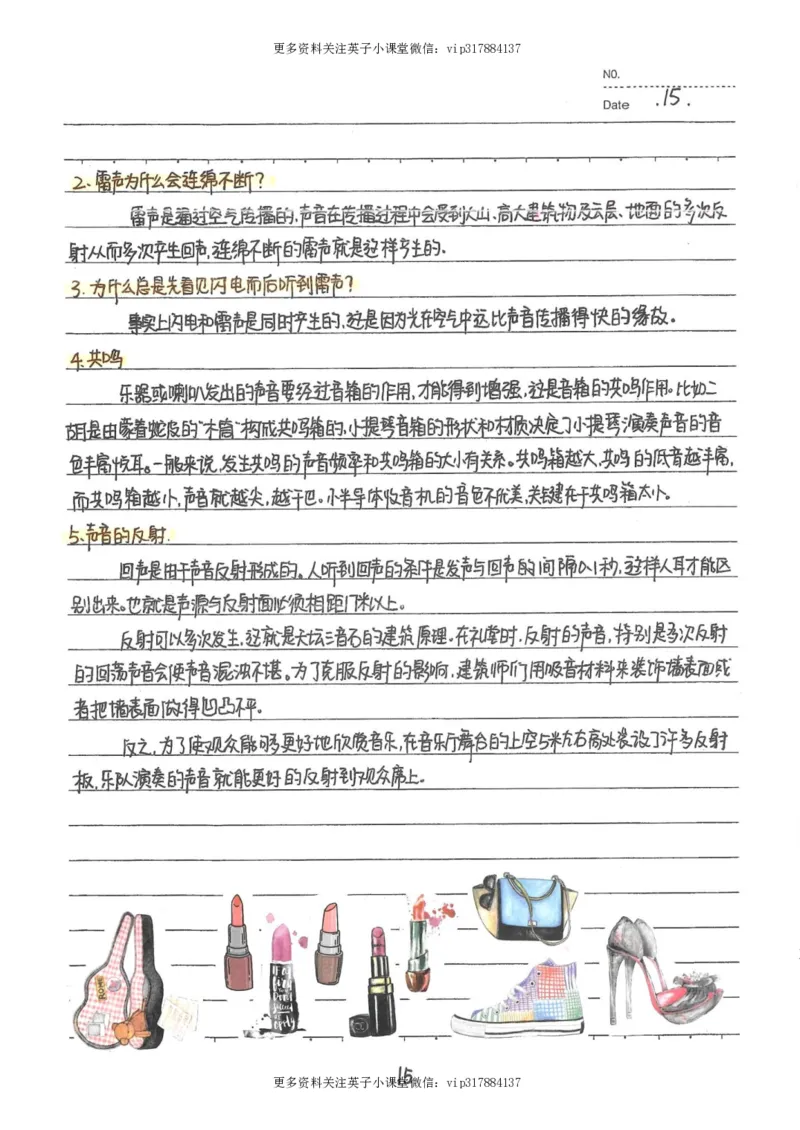 更多资料关注英子小课堂微信：vip317884137
NO.
Date .15.
2.雷声为什么会连绵不断?
雷声是通过空气传播的,声音在传播过程中会受到大山、高大建筑物及云层、地面的多次反
射从而多次产生回声,连绵不断的雷声就是这样产生的.
3.为什么总是先看见闪电而后听到雷声?
事实上闪电和雷声是同时产生的,这是因为光在空气中远比声音传播得快的缘故。
4.共鸣
乐器或喇叭发出的声音要经过音箱的作用,才能得到增强,这是音箱的共鸣作用。比如二
胡是由蒙着蛇皮的“木筒”构成共鸣箱的,小提琴音箱的形状和材质决定了小提琴演奏声音的音
色丰富悦耳。一般来说,发生共鸣的声音频率和共鸣箱的大小有关系。共鸣箱越大,共鸣的低音越丰富,
而共鸣箱越小,声音就越尖,越干巴。小半导体收音机的音色不优美,关键在于共鸣箱太小。
5.声音的反射.
回声是由于声音反射形成的。人听到回声的条件是发声与回声的间隔0.1秒,这样人耳才能区
别出来。也就是声源与反射面必须相距17米以上。
反射可以多次发生,这就是天坛三音石的建筑原理。在礼堂时,反射的声音,特别是多次反射
的回荡声音会使声音混浊不堪。为了克服反射的影响,建筑师们用吸音材料来装饰墙表面或
者把墙表面做得凹凸不平。
反之,为了使观众能够更好地欣赏音乐,在音乐厅舞台的上空5米左右高处装设了许多反射
板,乐队演奏的声音就能更好的反射到观众席上。
15
更多资料关注英子小课堂微信：vip317884137